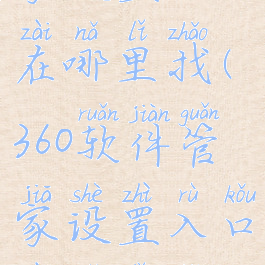 zài nǎ lǐ zhǎo
在哪里找(
ruǎn jiàn guǎn
360软件管
jiā shè zhì rù kǒu
家设置入口